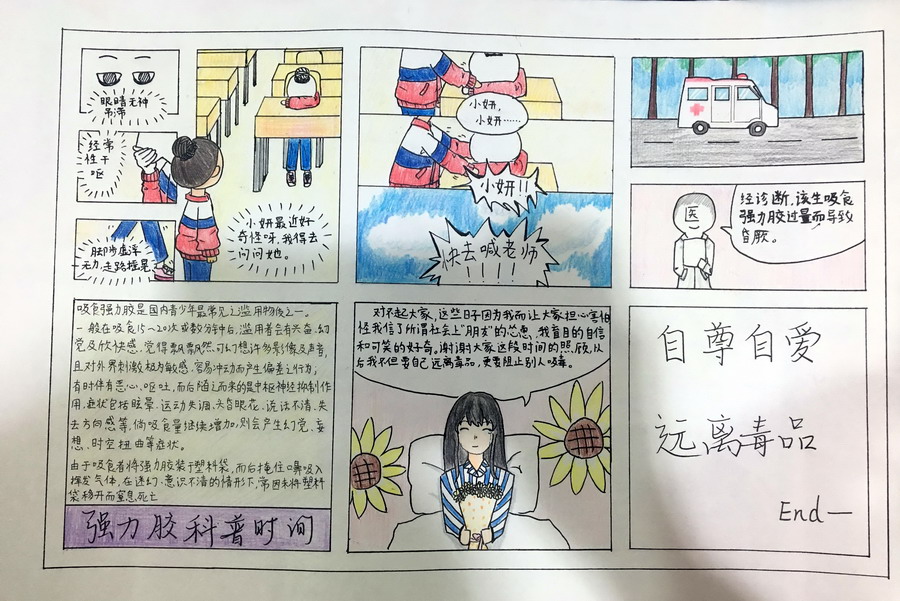 眼睛无神
呆滞
经常
性干
呕
脚步虚浮
无力,走路摇晃
小妍最近好
奇怪呀,我得去
问问她。
小妍,
小妍……
小妍!!
快去喊老师
!!!!
医
经诊断,该生吸食
强力胶过量而导致
昏厥。
吸食强力胶是国内青少年最常见之滥用物质之一。
一般在吸食15~20次或数分钟后,滥用者会有兴奋、幻
觉及欣快感、觉得飘飘然,可幻想许多影像及声音,
且对外界刺激极为敏感、容易冲动而产生偏差之行为;
有时伴有恶心、呕吐,而后随之而来的是中枢神经抑制作
用,症状包括眩晕、运动失调、头昏眼花、说话不清、失
去方向感等,倘吸食量继续增加,则会产生幻觉、妄
想、时空扭曲等症状。
由于吸食者将强力胶装于塑料袋,而后掩住口鼻吸入
挥发气体,在迷幻、意识不清的情形下,常因未将塑料
袋移开而窒息死亡
强力胶科普时间
对不起大家,这些日子因为我而让大家担心害怕
怪我信了所谓社会上“朋友”的怂恿,我盲目的自信
和可笑的好奇。谢谢大家这段时间的照顾,从
后我不但要自己远离毒品,更要阻止别人吸毒。
自尊自爱
远离毒品
End—